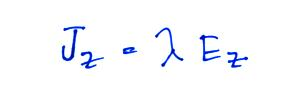 J_z = λ E_z